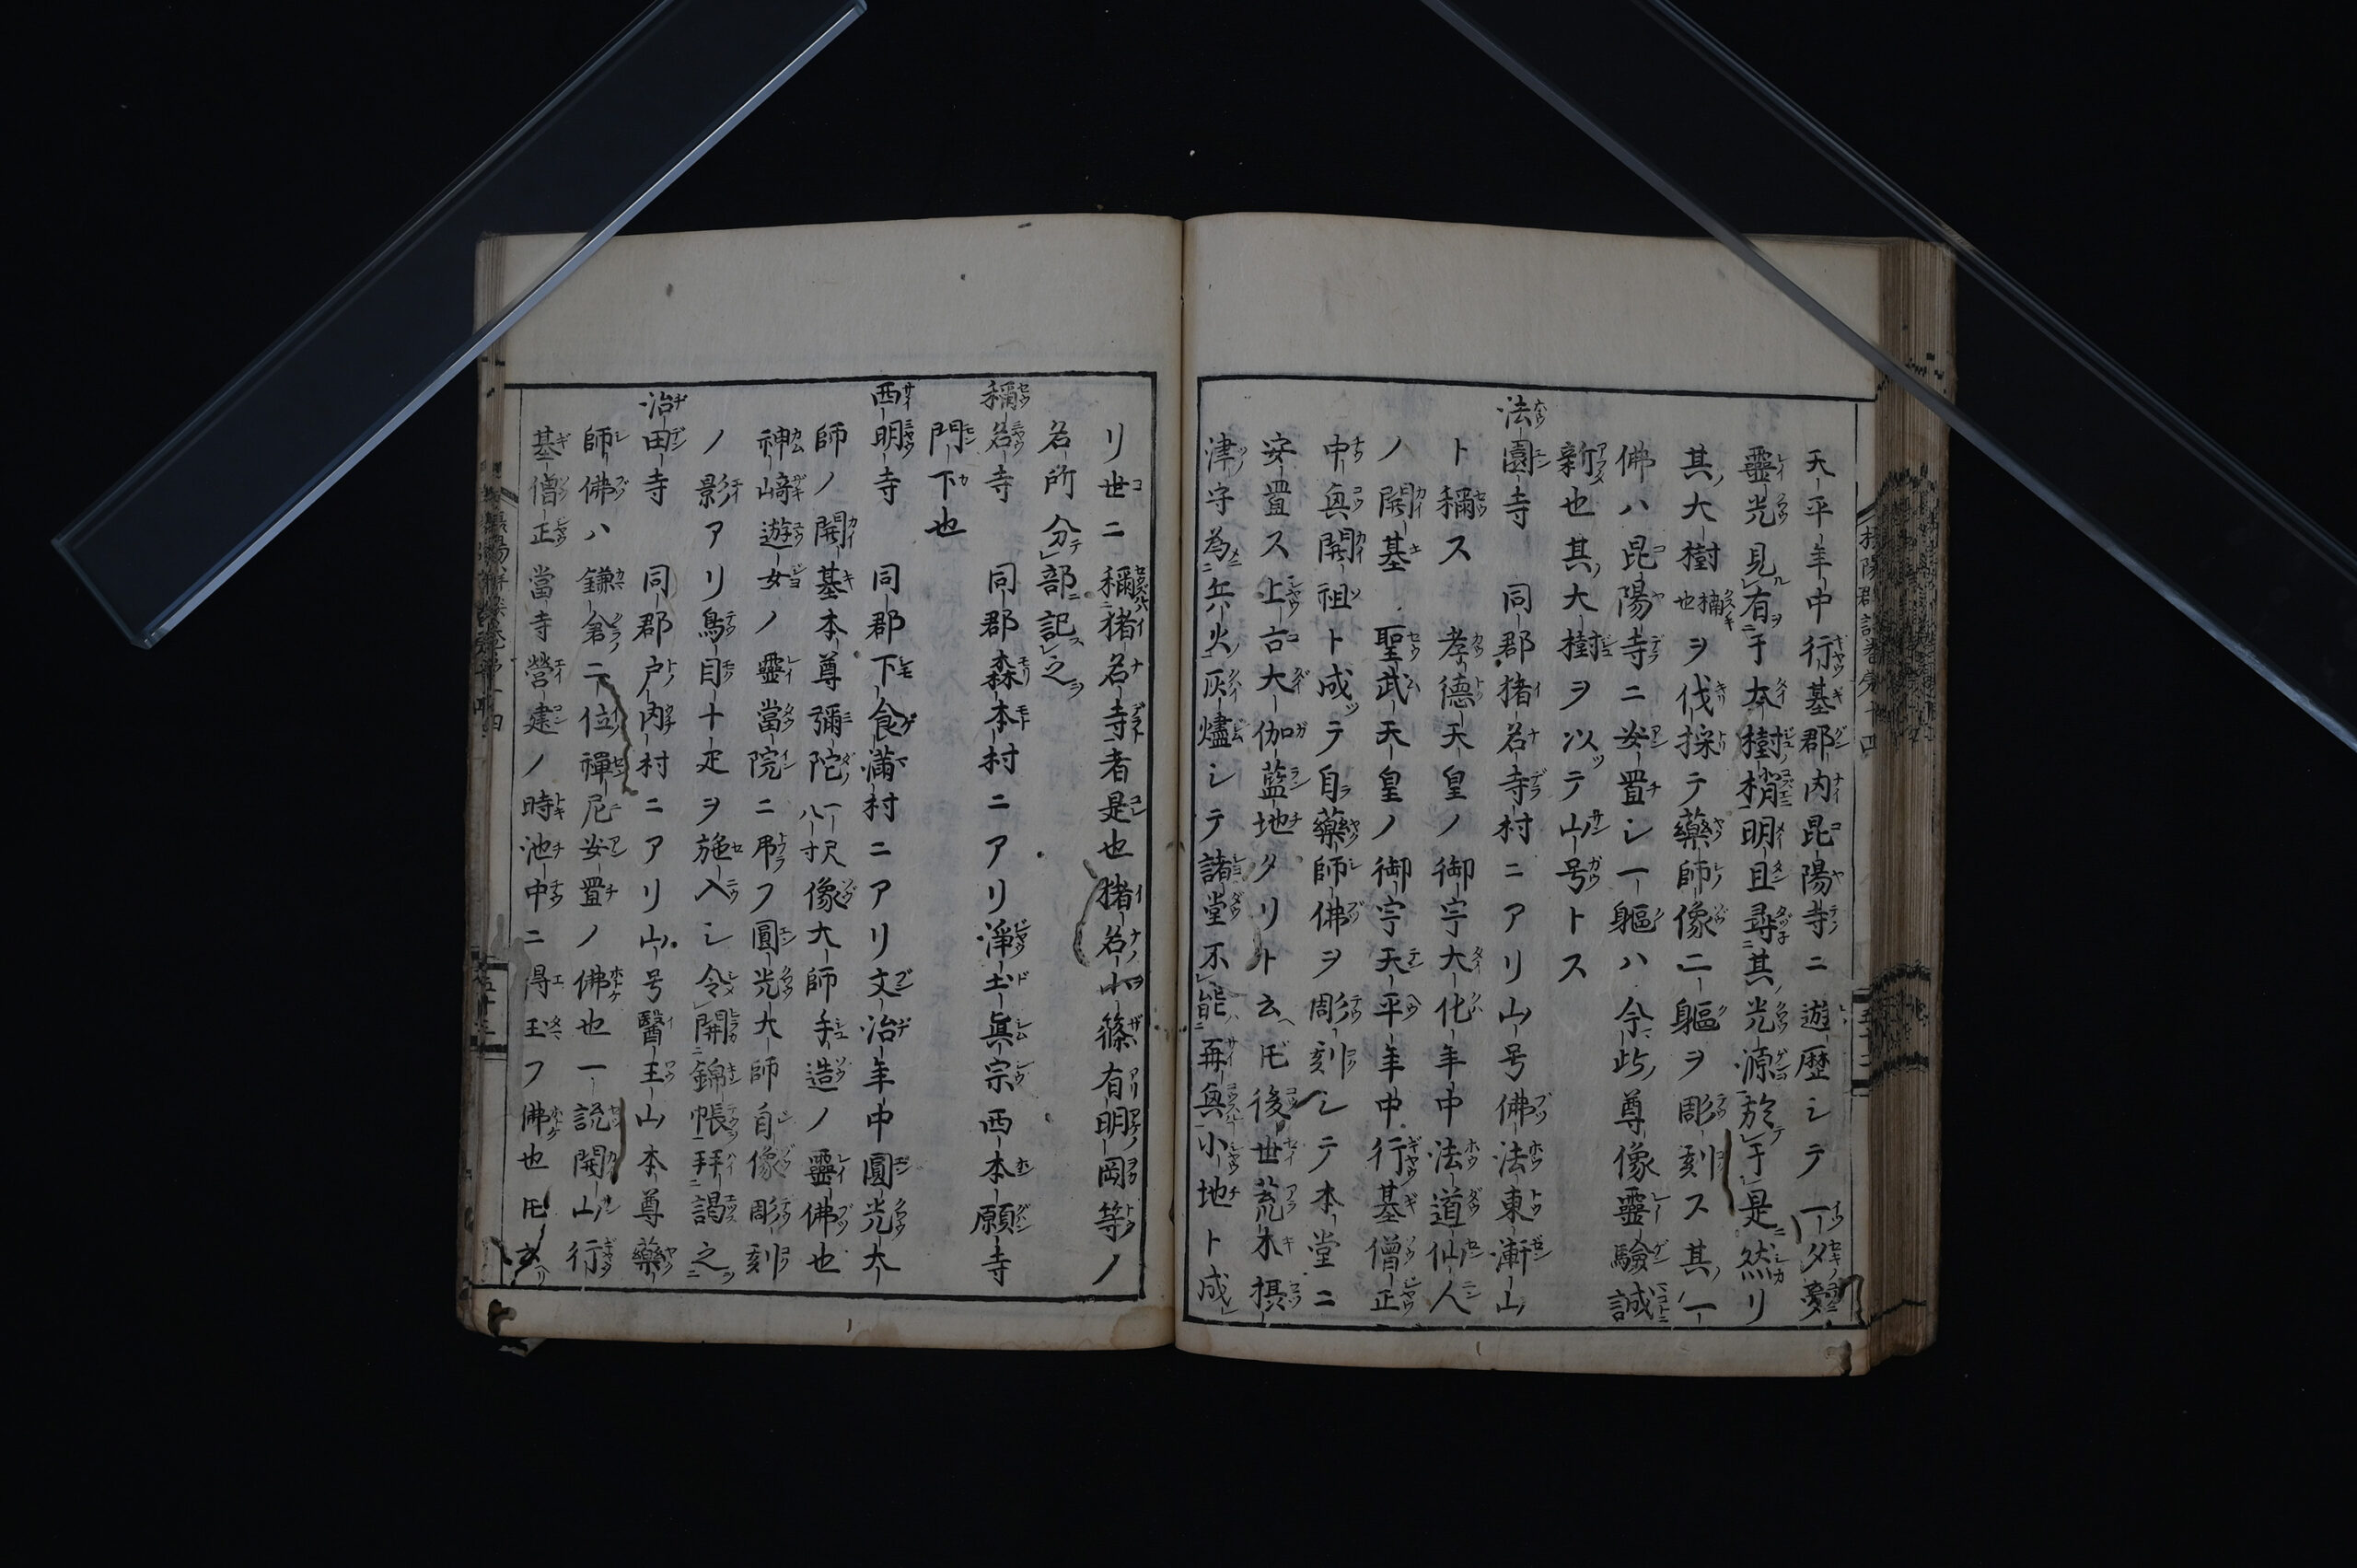 天平年中行基郡内昆陽寺ニ遊歴シテ一夕夢
靈光見有于本樹梢明旦尋其光源於于是然リ
其大樹楠也ヲ伐採テ藥師像二軀ヲ彫刻ス其一
佛ハ昆陽寺ニ安置シ一軀ハ今此尊像靈驗誠
新也其大樹ヲ以テ山号トス
法園寺 同郡猪名寺村ニアリ山号佛法東漸山
ト稱ス孝德天皇ノ御宇大化年中法道仙人
ノ開基聖武天皇ノ御宇天平年中行基僧正
中興開祖ト成テ自藥師佛ヲ彫刻シテ本堂ニ
安置ス上古大伽藍地タリト云ヘ𪜈後世荒木摂
津守為兵火灰燼シテ諸堂不能再興小地ト成
リ世ニ稱猪名寺者是也猪名小篠有明岡等ノ
名所分部記之
稱名寺 同郡森本村ニアリ淨土眞宗西本願寺
門下也
西明寺 同郡下食滿村ニアリ文治年中圓光大
師ノ開基本尊彌陀一尺八寸像大師手造ノ靈佛也
神﨑遊女ノ靈當院ニ弔フ圓光大師自像彫刻
ノ影アリ鳥目十疋ヲ施入シ令開錦帳拜謁之
治田寺 同郡戸内村ニアリ山号醫王山本尊藥
師佛ハ鎌倉二位禪尼安置ノ佛也一説開山行
基僧正當寺營建ノ時池中ニ得玉フ佛也𪜈云